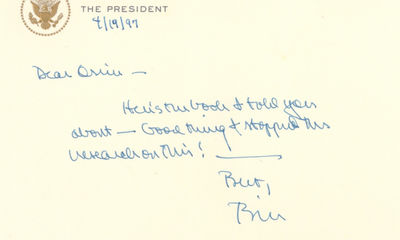 THE PRESIDENT
4/19/97
Dear Orrin —
Here's the book I told you
about — Good thing I stopped this
research on this! —
Best,
Bill